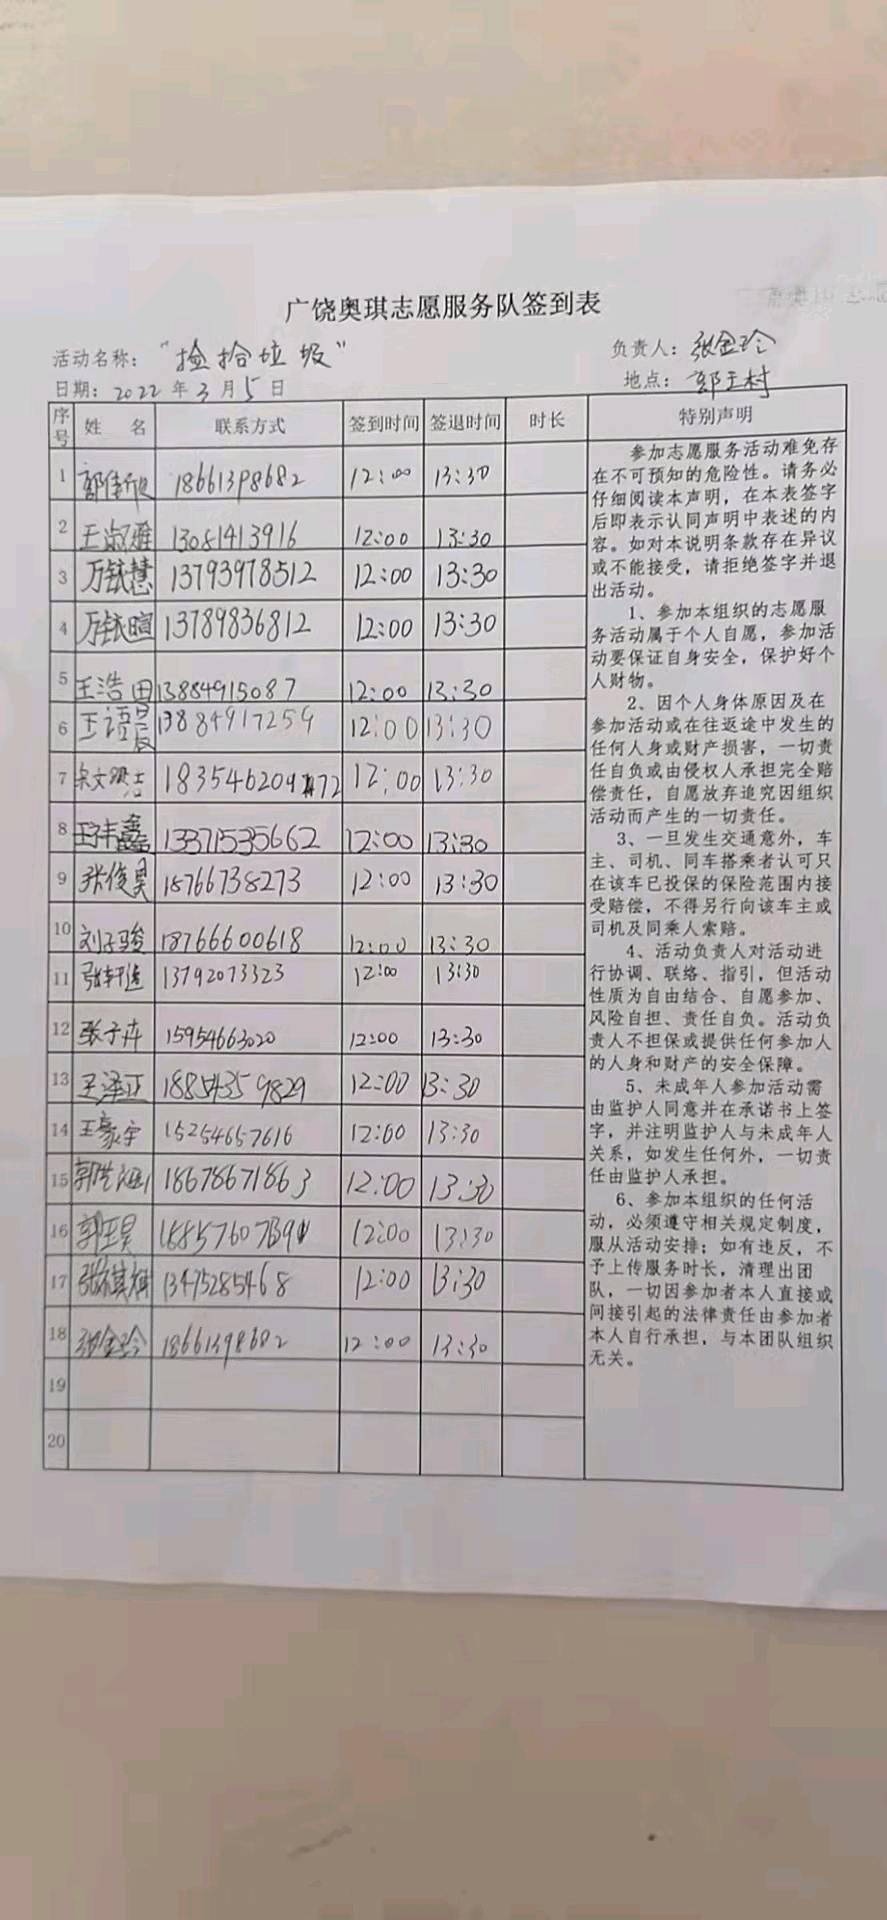 广饶奥琪志愿服务队签到表
活动名称：“捡拾垃圾” 负责人：张金玲
日期：2022年3月5日 地点：郭王村
序号 姓 名 联系方式 签到时间 签退时间 时长 特别声明
1 郭佳欣 18661398682 12:00 13:30
2 王淑雅 13081413916 12:00 13:30
3 万铱慧 13793978512 12:00 13:30
4 万铱暄 13789836812 12:00 13:30
5 王浩田 13884915087 12:00 13:30
6 王语晨 13884917259 12:00 13:30
7 宋文 12:00 13:30
8 13371535662 12:00 13:30
9 张俊昊 18766738273 12:00 13:30
10 刘子骏 18766600618 12:00 13:30
11 张轩逸 13792073323 12:00 13:30
12 张子卉 15954663020 12:00 13:30
13 王泽正 18854359829 12:00 13:30
14 王豪宇 15254657616 12:00 13:30
15 郭 18678671863 12:00 13:30
16 郭玉昊 12:00 13:30
17 张祺旭 13475285468 12:00 13:30
18 张金玲 18661398682 12:00 13:30
19
20
参加志愿服务活动难免存
在不可预知的危险性。请务必
仔细阅读本声明，在本表签字
后即表示认同声明中表述的内
容。如对本说明条款存在异议
或不能接受，请拒绝签字并退
出活动。
1、参加本组织的志愿服
务活动属于个人自愿，参加活
动要保证自身安全，保护好个
人财物。
2、因个人身体原因及在
参加活动或在往返途中发生的
任何人身或财产损害，一切责
任自负或由侵权人承担完全赔
偿责任，自愿放弃追究因组织
活动而产生的一切责任。
3、一旦发生交通意外，车
主、司机、同车搭乘者认可只
在该车已投保的保险范围内接
受赔偿，不得另行向该车主或
司机及同乘人索赔。
4、活动负责人对活动进
行协调、联络、指引，但活动
性质为自由结合、自愿参加、
风险自担、责任自负。活动负
责人不担保或提供任何参加人
的人身和财产的安全保障。
5、未成年人参加活动需
由监护人同意并在承诺书上签
字，并注明监护人与未成年人
关系，如发生任何外，一切责
任由监护人承担。
6、参加本组织的任何活
动，必须遵守相关规定制度，
服从活动安排；如有违反，不
予上传服务时长，清理出团
队，一切因参加者本人直接或
间接引起的法律责任由参加者
本人自行承担，与本团队组织
无关。